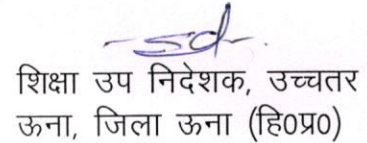 -sd-
शिक्षा उप निदेशक, उच्चतर
ऊना, जिला ऊना (हि०प्र०)